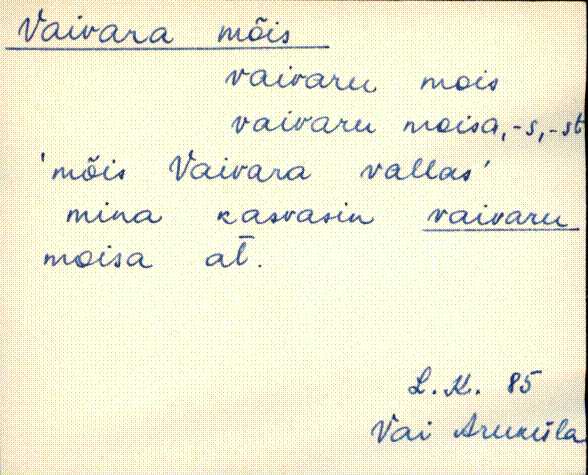 Vaivara mõis
vaivaru mois
vaivaru moisa, -s, -st
'mõis Vaivara vallas'
mina kasvasin vaivaru
moisa at̄.
L. K. 85
Vai Aruküla